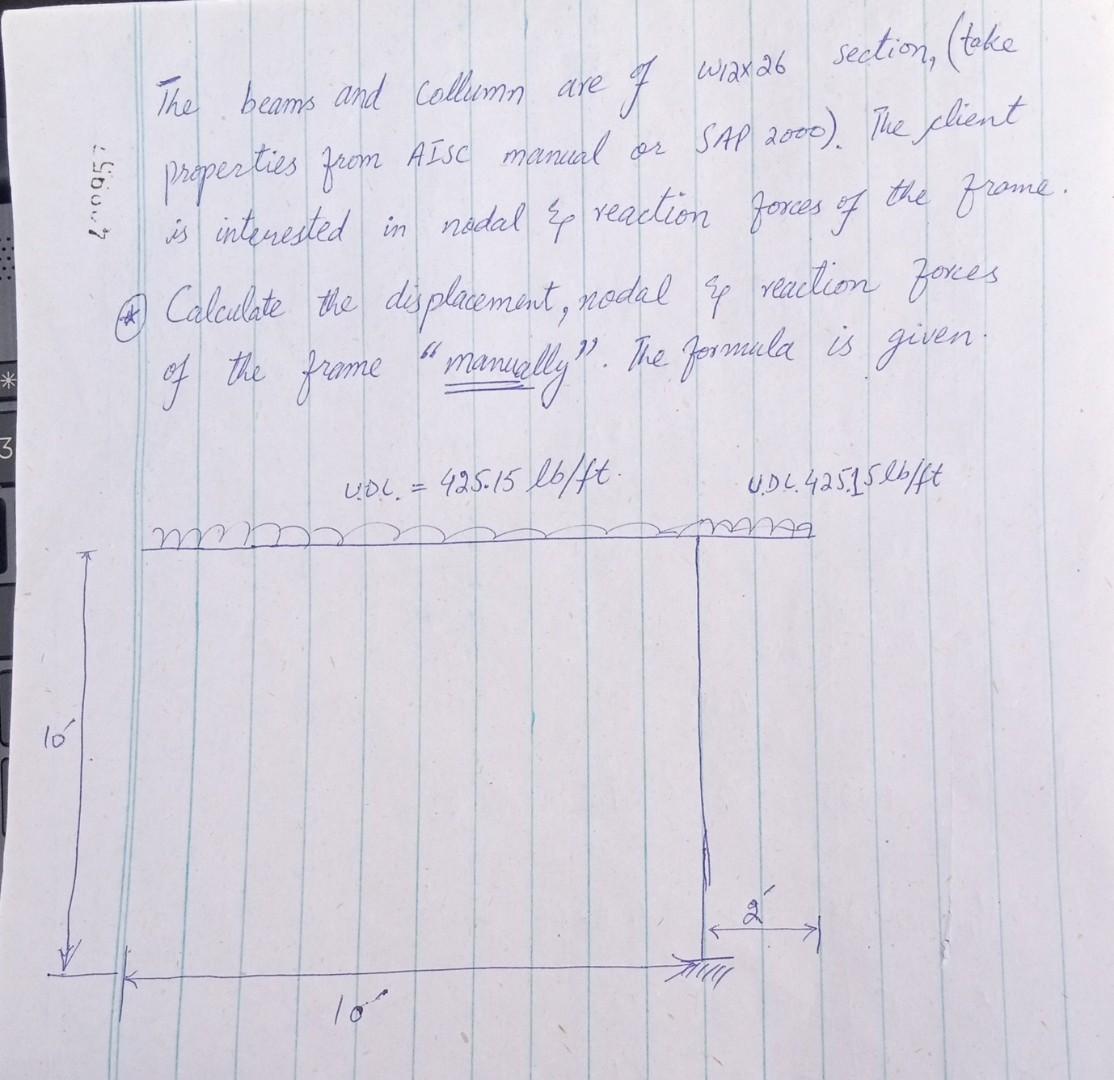 The beams and collumn are of W12x26 section, (take
properties from AISC manual or SAP 2000). The client
is interested in nodal & reaction forces of the frame.
* Calculate the displacement, nodal & reaction forces
of the frame "manually". The formula is given.
U.D.L. = 425.15 lb/ft.
U.D.L. 425.15 lb/ft
10'
2'
10'
3
*